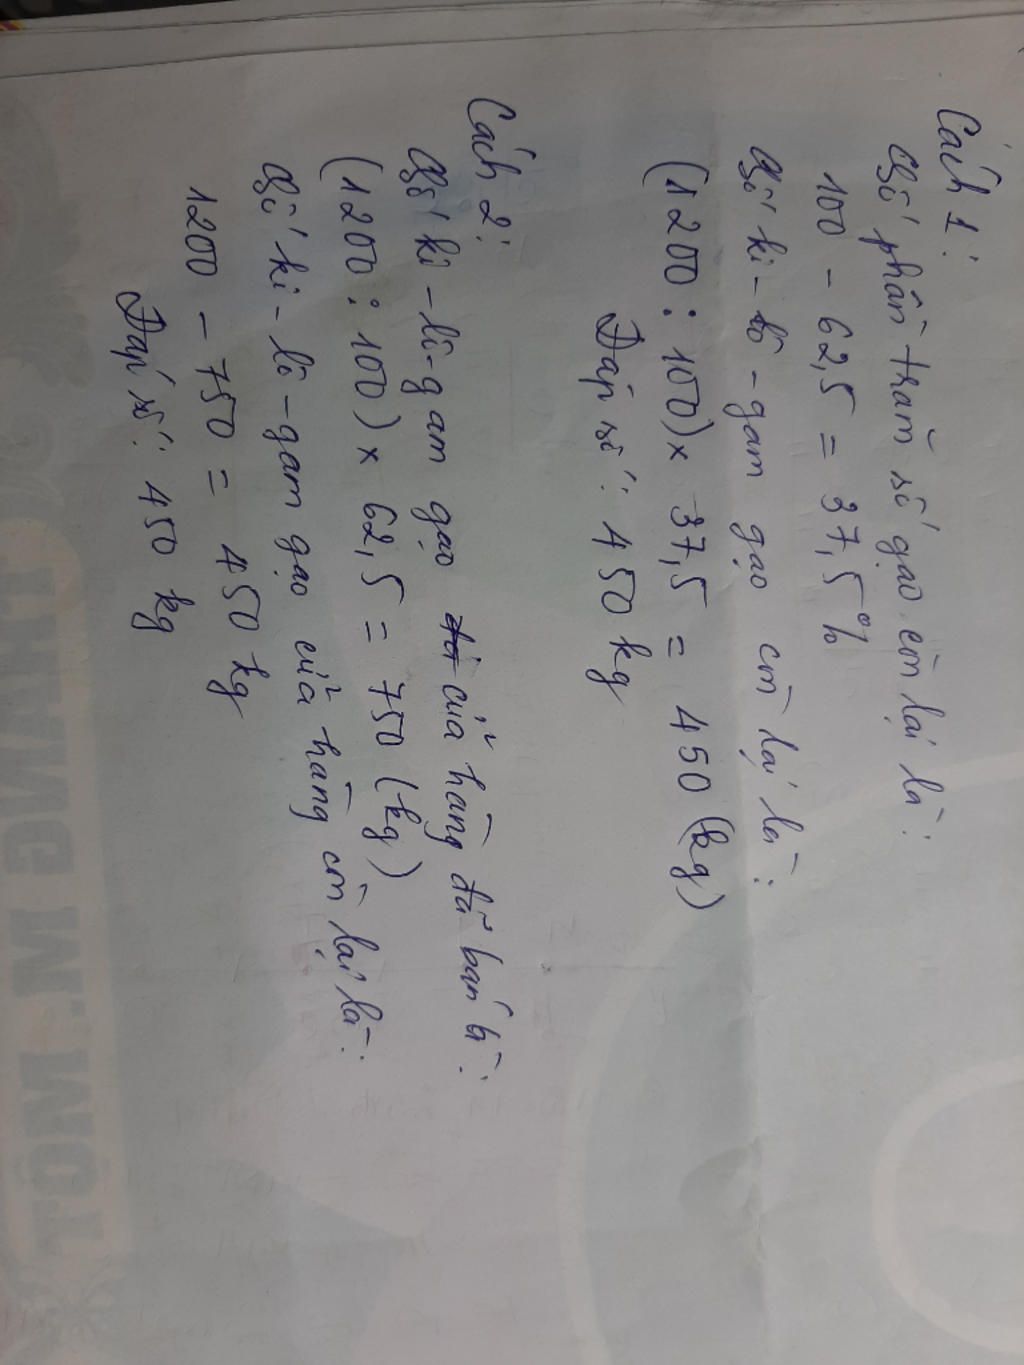 Cách 1:
Số phần trăm số gạo còn lại là:
100 - 62,5 = 37,5%
Số ki-lô-gam gạo còn lại là:
(1200 : 100) x 37,5 = 450 (kg)
Đáp số: 450 kg
Cách 2:
Số ki-lô-gam gạo cửa hàng đã bán là:
(1200 : 100) x 62,5 = 750 (kg)
Số ki-lô-gam gạo cửa hàng còn lại là:
1200 - 750 = 450 kg
Đáp số: 450 kg